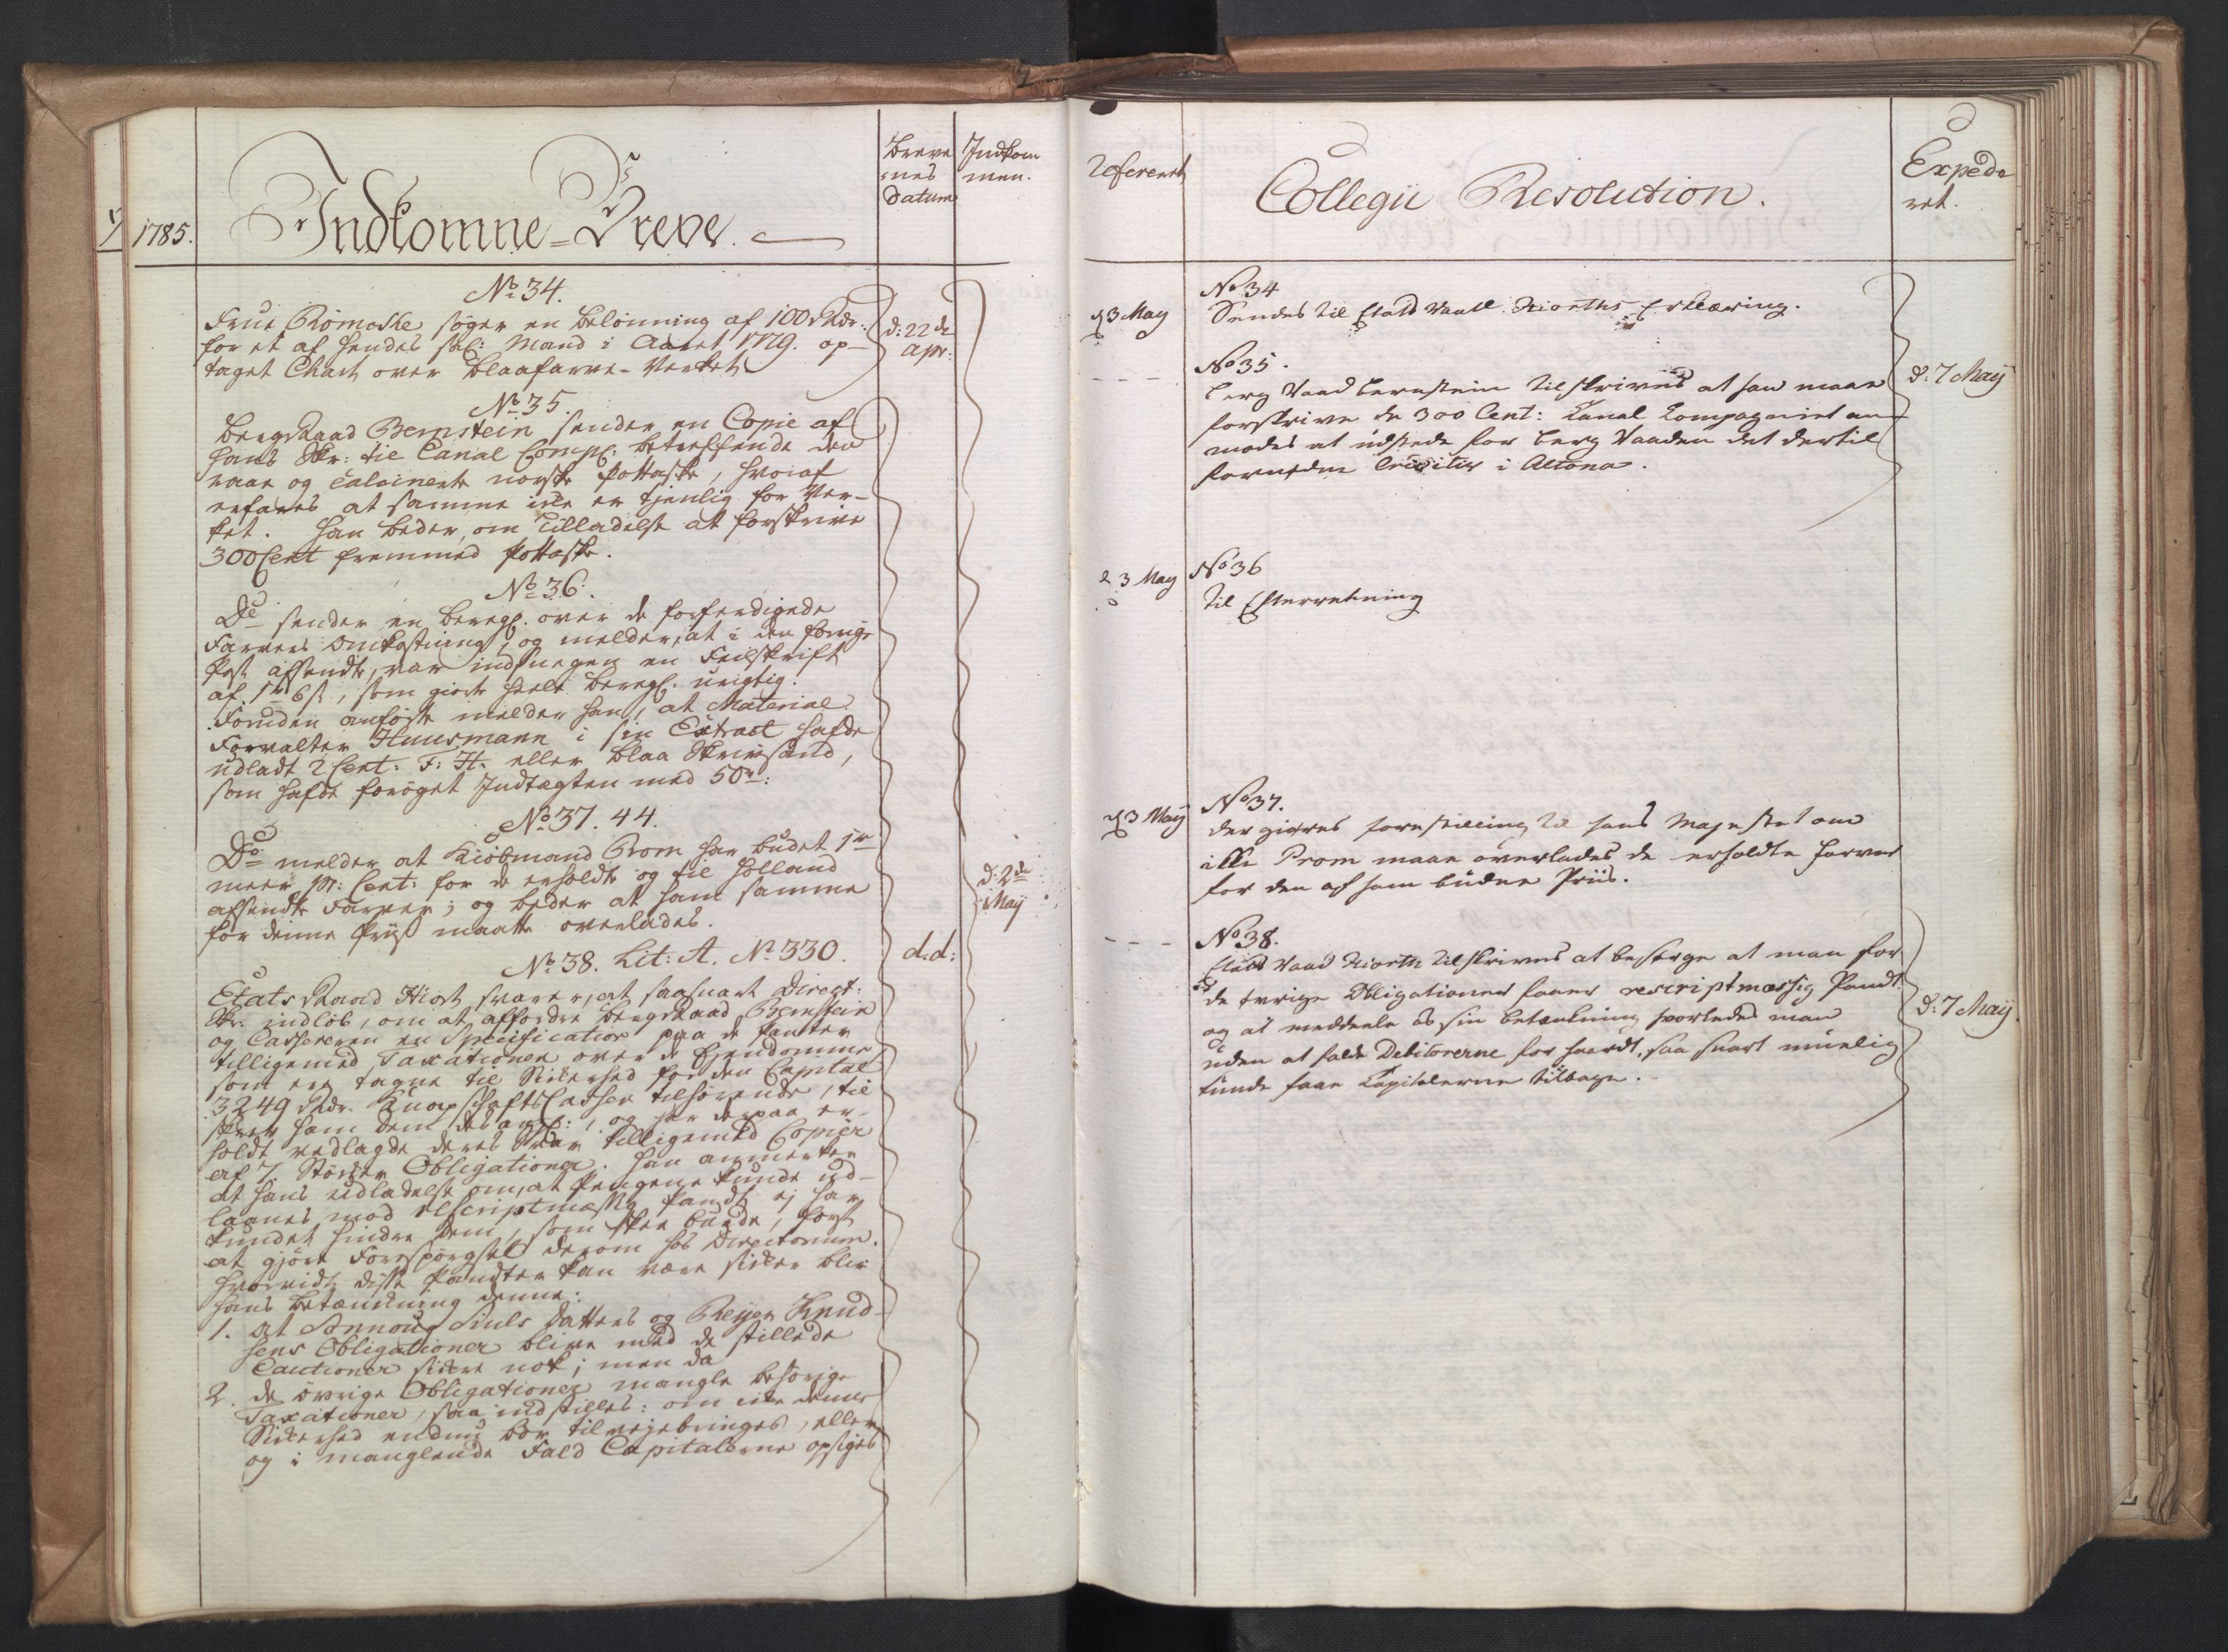 1785.
Indkomne-Breve.
Breve
rnes
Datum
Indkom
men.
No 34.
Frue Römcke söger en Belönning af 100 Rdr.
for et af hendes sal: Mand i Aaret 1779. op-
taget Chart over Blaafarve-Verket.
d: 22de
Apr:
No 35.
BergRaad Bernstein sender en Copie af
hans Skr: til Canal Comp: betreffende den
raae og calcinerte norske Pottaske, hvoraf
erfares at samme icke er tjenlig for Ver-
ket. Han beder, om Tilladelse at forskrive
300 Cent fremmed Pottaske.
No 36.
Do sender en Beregn: over de forferdigede
Farvers Omkostning, og melder, at i den forrige
Post afsendte, var indsneget en Feilskrift
af 1r 6s, som giorde heele Beregn: urigtig.
Foruden anförte melder han, at Material
Forvalter Huusmann i sin Extract hafde
udladt 2 Cent: F: H. eller blaa Skrivsand,
som hafde foröget Indtægten med 50r:
No 37. 44.
Do melder at Kiöbmand Prom har budet 1r
meer pr: Cent: for de erholdte og til Holland
afsendte Farver; og beder at ham samme
for denne Priis maatte overlades.
d: 2de
May
No 38. Lit: A. No 330.
d. d:
EtatsRaad Hiort svarer, at saasnart Direct:
Skr: indlöb, om at affordre BergRaad Bernstein
og Cassereren en Specification paa de Panter
tilligemed Taxationer over de Ejendomme
som ere tagne til Sickerhed for den Capital
3249 Rdr. KnapschaftsCassen tilhörende, til
skrev ham dem desang:, og har derpaa er-
holdt vedlagde deres Svar tilligemed Copier
af 7 Stöcker Obligationer. Han anmerker
at hans Udladelse om, at Pengene kunde ud-
laanes mod rescriptmæssig Pandt ej har
kundet hindre dem, som skee burde, först
at gjöre Forespörgsel derom hos Directorium.
Hvorvidt disse Pandter kan være sicker blir
hans Betænkning denne:
1. at Annoug Siuls Datters og Reyer Knud-
sens Obligationer blive med de stillede
Cautioner sickre nok; men da
2. de övrige Obligationer mangle behörige
Taxationer, saa indstilles: om icke denne
Sickerhed endnu bör tilvejebringes, eller
og i manglende Fald Capitalerne opsiges
Referent
Collegii Resolution.
Expede
ret.
d 3 May
No 34
Sendes til Etats Raad Hiorths Erklæring.
No 35.
Berg Raad Bernstein tilskrives at han maae
forskrive de 300 Cent: Canal Compagniet an
modes at udstede for Berg Raaden det dertil
fornødne Creditiv i Altona.
d: 7 May
d 3 May
No 36
til Efterretning
d 3 May
No 37.
der giøres forestilling til hans Majestet om
ikke Prom maae overlades de erholdte Farver
for den af ham budne Priis.
No 38.
Etats Raad Hiorth tilskrives at besørge at man for
de øvrige Obligationer faaer rescriptmæssig Pandt
og at meddeele os sin betænkning hvorledes man
uden at falde Debitorerne for haardt, saa snart muelig
kunde faae Capitalerne tilbage.
d: 7 May.